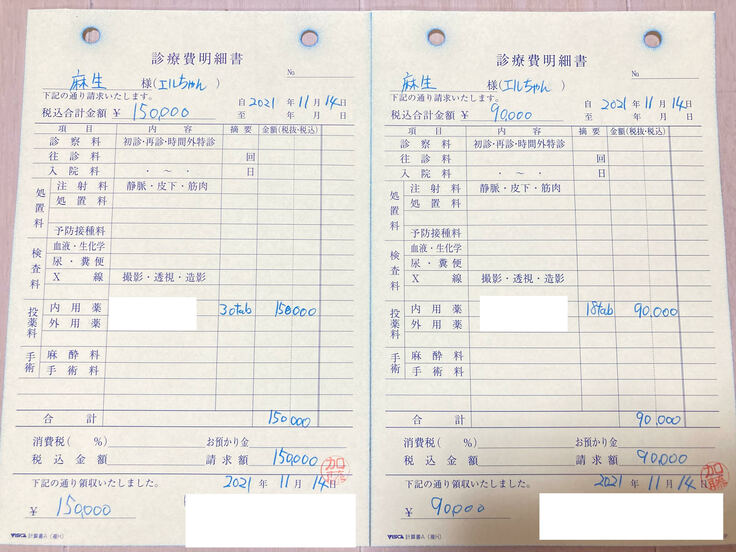 診療費明細書
No
麻生 様(エルちゃん )
下記の通り請求いたします。
自 2021 年 11 月 14 日
税込合計金額 ¥ 150,000
至 年 月 日
項 目 内 容 摘 要 金額(税抜・税込)
診 察 料 初診・再診・時間外特診
往 診 料 回
入 院 料 ・ ~ ・ 日
処置料 注 射 料 静脈・皮下・筋肉
処 置 料
予防接種料
検査料 血液・生化学
尿・糞便
X 線 撮影・透視・造影
投薬料 内 用 薬 30tab 150000
外 用 薬
手術 麻 酔 料
手 術 料
合 計 150000
消費税( %) お預かり金
税 込 金 額 請 求 額 150,000
下記の通り領収いたしました。 2021 年 11 月 14 日
¥ 150,000
VISCA 計算書A(複H)
診療費明細書
No
麻生 様(エルちゃん )
下記の通り請求いたします。
自 2021 年 11 月 14 日
税込合計金額 ¥ 90,000
至 年 月 日
項 目 内 容 摘 要 金額(税抜・税込)
診 察 料 初診・再診・時間外特診
往 診 料 回
入 院 料 ・ ~ ・ 日
処置料 注 射 料 静脈・皮下・筋肉
処 置 料
予防接種料
検査料 血液・生化学
尿・糞便
X 線 撮影・透視・造影
投薬料 内 用 薬 18tab 90,000
外 用 薬
手術 麻 酔 料
手 術 料
合 計 90,000
消費税( %) お預かり金
税 込 金 額 請 求 額 90,000
下記の通り領収いたしました。 2021 年 11 月 14 日
¥ 90,000
VISCA 計算書A(複H)